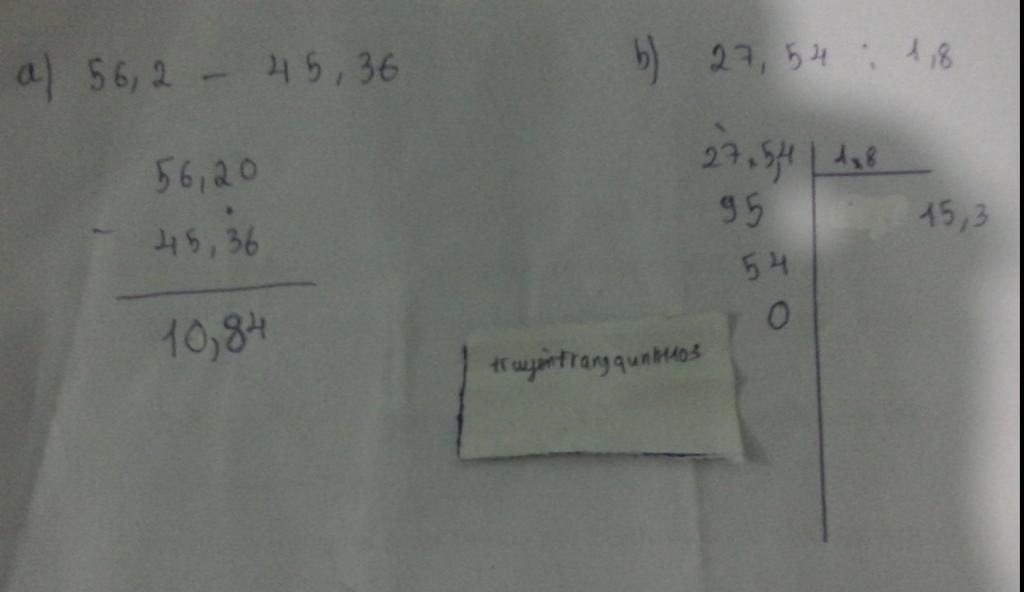 a) 56,2 - 45,36
56,20
- 45,36
10,84
b) 27,54 : 1,8
27,5,4 | 1,8
95 15,3
54
0